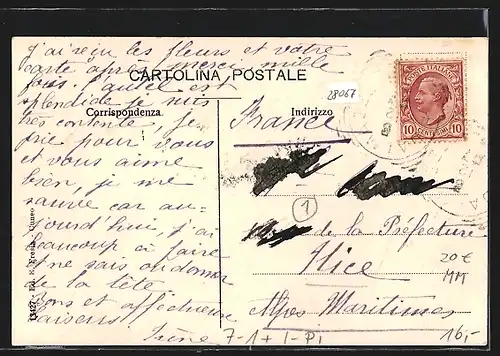 j'ai reçu les fleurs et votre
carte après merci mille
fois. l'autel est
CARTOLINA POSTALE
28067
POSTE ITALIANE
10 CENTESIMI 10
splendide je suis
Corrispondenza
Indirizzo
très contente, je
prie pour vous
et vous aime
bien, je me
sauve car au-
jourd'hui, j'ai
beaucoup à faire
et ne sais où donner
de la tête.
Bons et affectueux
baisers
Irène
France
1
de la Préfecture
Nice
Alpes Maritimes
20€
MM
7-1+1-P,
16,-
13427 - Ed. E. Cuneo